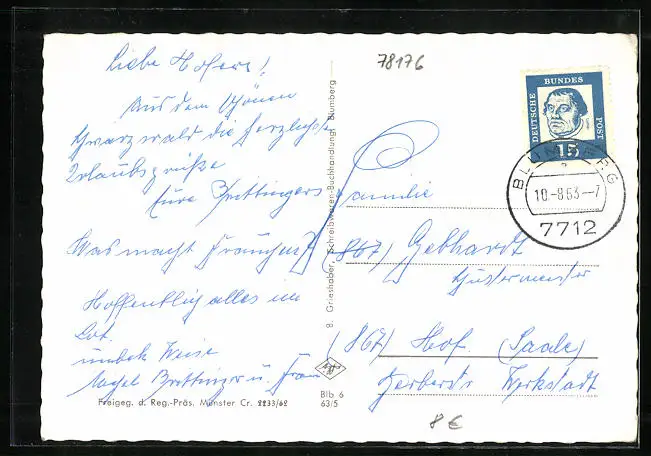 78176
Liebe Hofers!
Aus dem schönen
Schwarzwald die herzlichsten
Urlaubsgrüße
Eure Brettingers
Was macht
Hoffentlich alles im
Lot.
Weise
Brettinger u. Frau
Freigeg. d. Reg.-Präs. Münster Cr. 2233/62
B. Grieshaber, Schreibwaren-Buchhandlung, Blumberg
Blb 6
63/5
DEUTSCHE BUNDES POST
15
BLUMBERG
a
10.-8.63--7
7712
Familie
(867) Gebhardt
(867) Hof (Saale)
Werkstadt
8 €